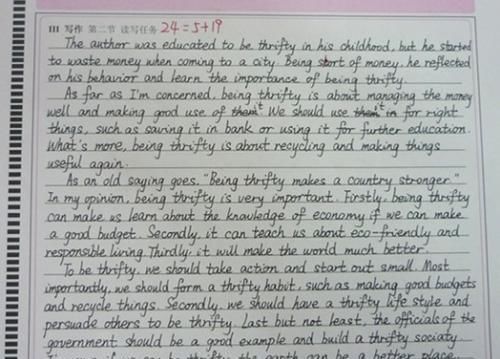 III 写作 第二节 读写任务 24=5+19
The author was educated to be thrifty in his childhood, but he started
to waste money when coming to a city. Being short of money, he reflected
on his behavior and learn the importance of being thrifty.
As far as I'm concerned, being thrifty is about managing the money
well and making good use of them it. We should use them it in for right
things, such as saving it in bank or using it for further education.
What's more, being thrifty is about recycling and making things
useful again.
As an old saying goes, "Being thrifty makes a country stronger."
In my opinion, being thrifty is very important. Firstly, being thrifty
can make us learn about the knowledge of economy if we can make
a good budget. Secondly, it can teach us about eco-friendly and
responsible living. Thirdly, it will make the world much better.
To be thrifty, we should take action and start out small. Most
importantly, we should form a thrifty habit, such as making good budgets
and recycle things. Secondly, we should have a thrifty life style and
persuade others to be thrifty. Last but not least, the officials of the
government should be a good example and build a thrifty sociaty.
if we can be thrifty, the earth can be a better place